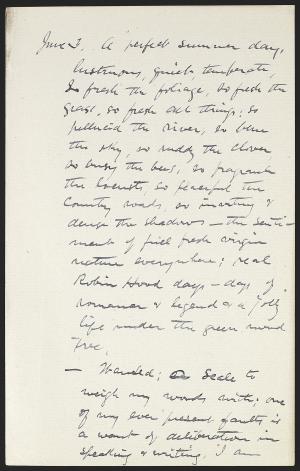 June 3. A perfect summer day,
lustrous, quiet, temperate,
So fresh the foliage, so fresh the
grass, so fresh all things; so
pellucid the river, so blue
the sky, so ruddy the clover,
so busy the bees, so fragrant
the locusts, so peaceful the
Country roads, so inviting &
dense the shadows — the senti-
ment of full fresh virgin
nature everywhere; real
Robin Hood days — days of
romance & legend & a jolly
life under the green wood
tree,
— Wanted; Scale to
weigh my words with; one
of my ever present faults is
a want of deliberation in
speaking & writing. I am